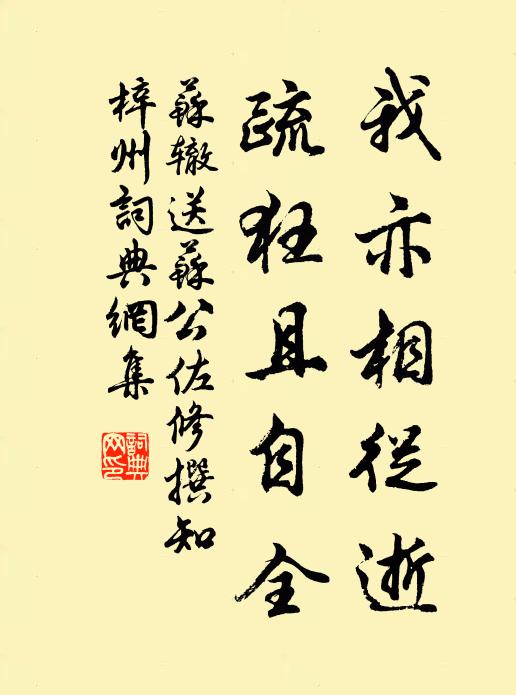 我亦相從逝
疏狂且自全
蘇辙送蘇公佐修撰知
梓州詞典網集
詞典网印